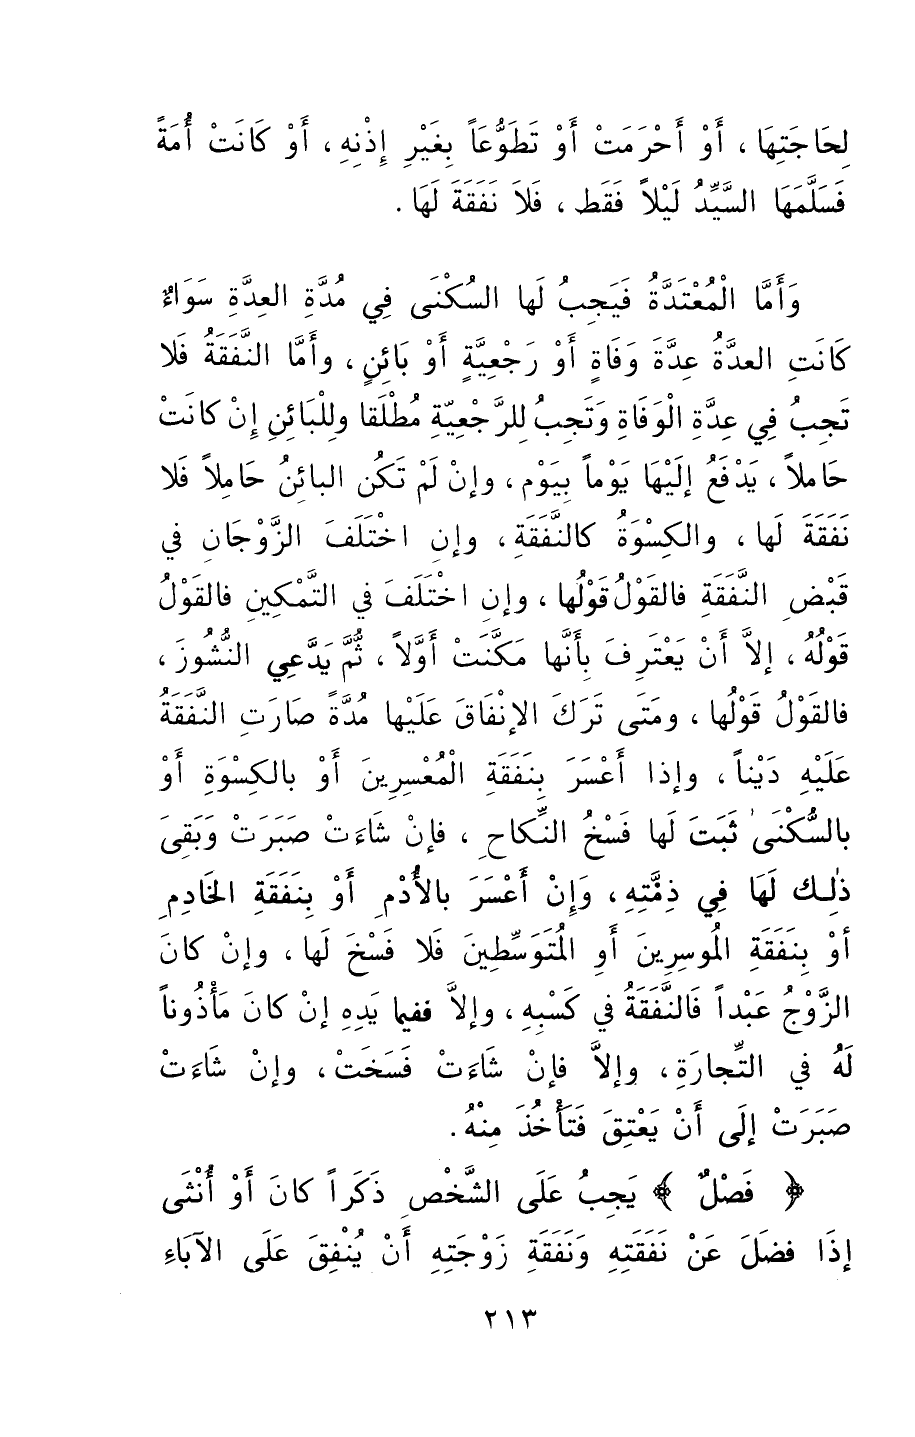 لِحَاجَتِهَا ، أَوْ أَحْرَمَتْ أَوْ تَطَوُّعَاً بِغَيْرِ إِذْنِهِ ، أَوْ كَانَتْ أُمَةً
فَسَلَّمَهَا السَّيِّدُ لَيْلاً فَقَط ، فَلاَ نَفَقَةَ لَهَا .
وَأَمَّا الْمُعْتَدَّةُ فَيَجِبُ لَها السُكْنَى فِي مُدَّةِ العِدَّةِ سَوَاءٌ
كَانَتِ العدَّةُ عِدَّةَ وَفَاةٍ أَوْ رَجْعِيَّةٍ أَوْ بَائِنٍ ، وأَمَّا النَّفَقَةُ فَلا
تَجِبُ فِي عِدَّةِ الْوَفَاةِ وَتَجِبُ لِلرَّجْعِيّةِ مُطْلَقا ولِلْبَائِنِ إِنْ كانَتْ
حَاملاً ، يَدْفَعُ إلَيْهَا يَوْماً بِيَوْم ، وإنْ لَمْ تَكُن البائنُ حَامِلاً فَلا
نَفَقَةَ لَها ، والكِسْوَةُ كالنَّفَقَةِ ، وإنِ اخْتَلَفَ الزَّوْجَانِ في
قَبْضِ النَّفَقَةِ فالقَوْلُ قَوْلُها ، وإنِ اخْتَلَفَ في التَّمْكِينِ فالقَوْلُ
قَوْلُهُ ، إلاَّ أَنْ يَعْتَرِفَ بِأَنَّها مَكَّنَتْ أَوَّلاً ، ثُمَّ يَدَّعِي النُّشُوزَ ،
فالقَوْلُ قَوْلُها ، ومَتَى تَرَكَ الإنْفَاقَ عَلَيْها مُدَّةً صَارَتِ النَّفَقَةُ
عَلَيْهِ دَيْناً ، وإذا أَعْسَرَ بِنَفَقَةِ الْمُعْسِرِينَ أَوْ بالكِسْوَةِ أَوْ
بالسُّكْنَى ثَبَتَ لَها فَسْخُ النِّكاحِ ، فإنْ شَاءَتْ صَبَرَتْ وَبَقِىَ
ذٰلِكَ لَهَا فِي ذِمَّتِهِ ، وَإِنْ أَعْسَرَ بالأُدْمِ أَوْ بِنَفَقَةِ الخَادِمِ
أوْ بِنَفَقَةِ المُوسِرِينَ أَوِ المُتَوَسِّطِينَ فَلا فَسْخَ لَها ، وإنْ كانَ
الزَّوْجُ عَبْداً فَالنَّفَقَةُ في كَسْبِهِ ، وإلاَّ ففيما يَدِهِ إنْ كانَ مَأْذُوناً
لَهُ في التِّجارَةِ ، وإلاَّ فإنْ شَاءَتْ فَسَخَتْ ، وإنْ شَاءَتْ
صَبَرَتْ إلَى أَنْ يَعْتِقَ فَتَأْخُذَ مِنْهُ .
﴿ فَصْلٌ ﴾ يَجِبُ عَلَى الشَّخْصِ ذَكَراً كانَ أَوْ أُنْثَى
إذَا فضَلَ عَنْ نَفَقَتِهِ وَنَفَقَةِ زَوْجَتِهِ أَنْ يُنْفِقَ عَلَى الآبَاءِ
٢١٣